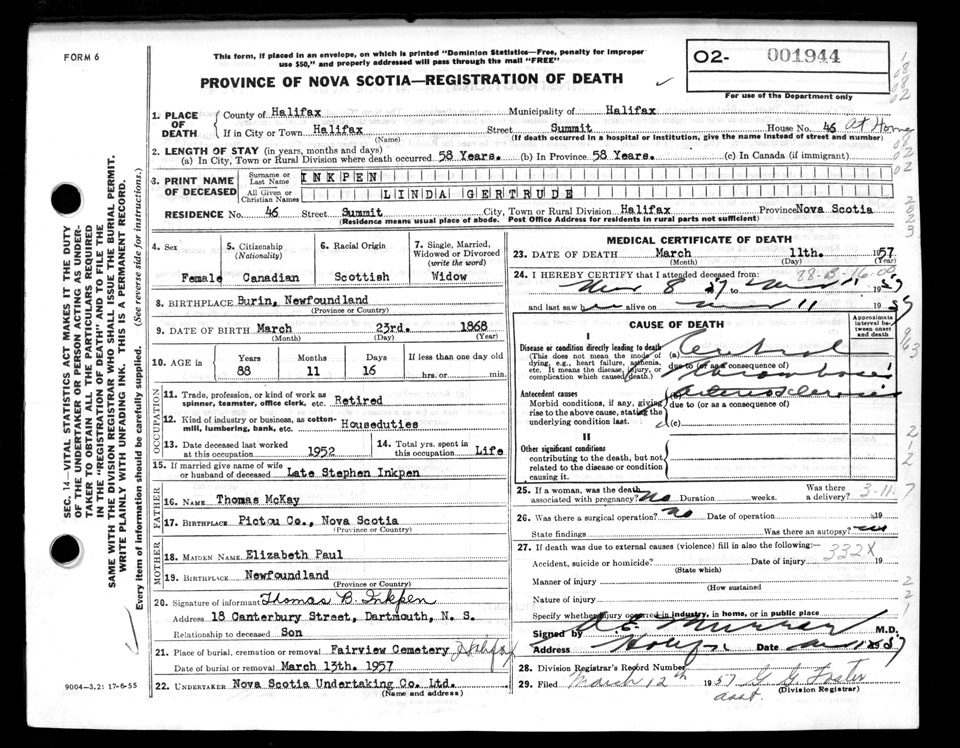 FORM 6
This form, if placed in an envelope, on which is printed "Dominion Statistics—Free, penalty for improper
use $50," and properly addressed will pass through the mail "FREE"
PROVINCE OF NOVA SCOTIA—REGISTRATION OF DEATH
O2- 001944
For use of the Department only
1. PLACE OF DEATH
County of Halifax Municipality of Halifax
If in City or Town Halifax Street Summit House No. 46 at Home
(Name) (If death occurred in a hospital or institution, give the name instead of street and number)
2. LENGTH OF STAY (in years, months and days)
(a) In City, Town or Rural Division where death occurred 58 Years. (b) In Province 58 Years. (c) In Canada (if immigrant)
3. PRINT NAME OF DECEASED
Surname or Last Name INKPEN
All Given or Christian Names LINDA GERTRUDE
RESIDENCE No. 46 Street Summit City, Town or Rural Division Halifax Province Nova Scotia
(Residence means usual place of abode. Post Office Address for residents in rural parts not sufficient)
4. Sex Female
5. Citizenship (Nationality) Canadian
6. Racial Origin Scottish
7. Single, Married, Widowed or Divorced (write the word) Widow
8. BIRTHPLACE Burin, Newfoundland
(Province or Country)
9. DATE OF BIRTH March 23rd. 1868
(Month) (Day) (Year)
10. AGE in Years Months Days If less than one day old
88 11 16 hrs. or min.
OCCUPATION
11. Trade, profession, or kind of work as spinner, teamster, office clerk, etc. Retired
12. Kind of industry or business, as cotton-mill, lumbering, bank, etc. Houseduties
13. Date deceased last worked at this occupation 1952
14. Total yrs. spent in this occupation Life
15. If married give name of wife or husband of deceased Late Stephen Inkpen
FATHER
16. NAME Thomas McKay
17. BIRTHPLACE Pictou Co., Nova Scotia
(Province or Country)
MOTHER
18. MAIDEN NAME Elizabeth Paul
19. BIRTHPLACE Newfoundland
(Province or Country)
20. Signature of informant Thomas B. Inkpen
Address 18 Canterbury Street, Dartmouth, N. S.
Relationship to deceased Son
21. Place of burial, cremation or removal Fairview Cemetery Halifax
Date of burial or removal March 13th. 1957
22. UNDERTAKER Nova Scotia Undertaking Co. Ltd.
(Name and address)
MEDICAL CERTIFICATE OF DEATH
23. DATE OF DEATH March 11th. 1957
(Month) (Day) (Year)
24. I HEREBY CERTIFY that I attended deceased from:
8 57 to 11 1957
and last saw h alive on 11 1957
CAUSE OF DEATH
Approximate interval between onset and death
I
Disease or condition directly leading to death
(This does not mean the mode of dying, e.g., heart failure, asthenia, etc. It means the disease, injury, or complication which caused death.)
(a) Cerebral
due to (or as a consequence of)
thrombosis
Antecedent causes
Morbid conditions, if any, giving rise to the above cause, stating the underlying condition last.
Arteriosclerosis
due to (or as a consequence of)
(c)
II
Other significant conditions
contributing to the death, but not related to the disease or condition causing it.
25. If a woman, was the death associated with pregnancy? No Duration weeks. Was there a delivery? 3-11-7
26. Was there a surgical operation? No Date of operation 19
State findings Was there an autopsy? no
27. If death was due to external causes (violence) fill in also the following:— 332X
Accident, suicide or homicide? Date of injury 19
(State which)
Manner of injury
(How sustained)
Nature of injury
Specify whether injury occurred in industry, in home, or in public place
Signed by Murray M.D.
Address Halifax Date 1957
28. Division Registrar's Record Number
29. Filed March 12th 1957 G G Foster
asst. (Division Registrar)
SEC. 14—VITAL STATISTICS ACT MAKES IT THE DUTY
OF THE UNDERTAKER OR PERSON ACTING AS UNDER-
TAKER TO OBTAIN ALL THE PARTICULARS REQUIRED
IN THE "REGISTRATION OF DEATH" AND TO FILE THE
SAME WITH THE DIVISION REGISTRAR WHO SHALL ISSUE THE BURIAL PERMIT.
WRITE PLAINLY WITH UNFADING INK. THIS IS A PERMANENT RECORD.
Every item of information should be carefully supplied. (See reverse side for instructions.)
9004-3.2: 17-6-55